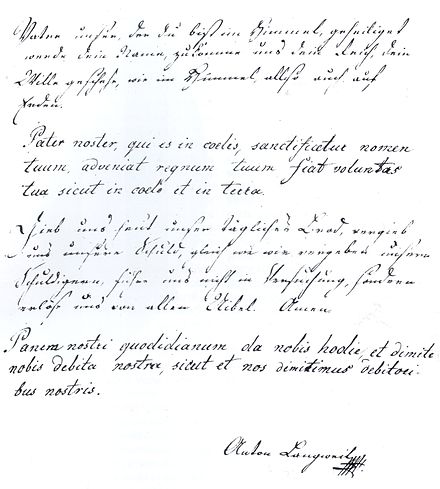 Vater unser, der du bist im Himmel, geheiliget
werde dein Name, zukomme uns dein Reich, dein
Wille geschehe, wie im Himmel, allso auch auf
Erden.
Pater noster, qui es in coelis, sanctificetur nomen
tuum, adveniat regnum tuum fiat voluntas
tua sicut in coelo et in terra.
Gieb uns heut unser tägliches Brod, vergieb
uns unsere Schuld, gleich wie wir vergeben unsern
Schuldigern, führe uns nicht in Versuchung, sondern
erlöse uns von allem Uibel. Amen.
Panem nostri quodidianum da nobis hodie, et dimite
nobis debita nostra, sicut et nos dimitimus debitori-
bus nostris.
Anton Langweil